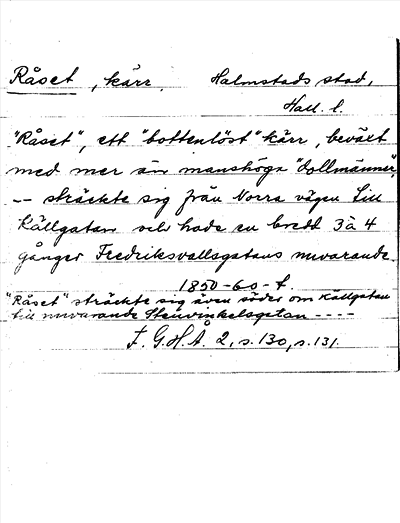 Råset, kärr. Halmstads stad,
Hall. l.
"Råset", ett "bottenlöst" kärr, beväxt
med mer än manshöga "dollmänner",
-- sträckte sig från Norra vägen till
Källgatan och hade en bredd 3 à 4
gånger Fredriksvallsgatans nuvarande.
1850-60-t.
"Råset" sträckte sig även söder om Källgatan
till nuvarande Stenvinkelsgatan ----
F. G. H. Å. 2, s. 130, s. 131.